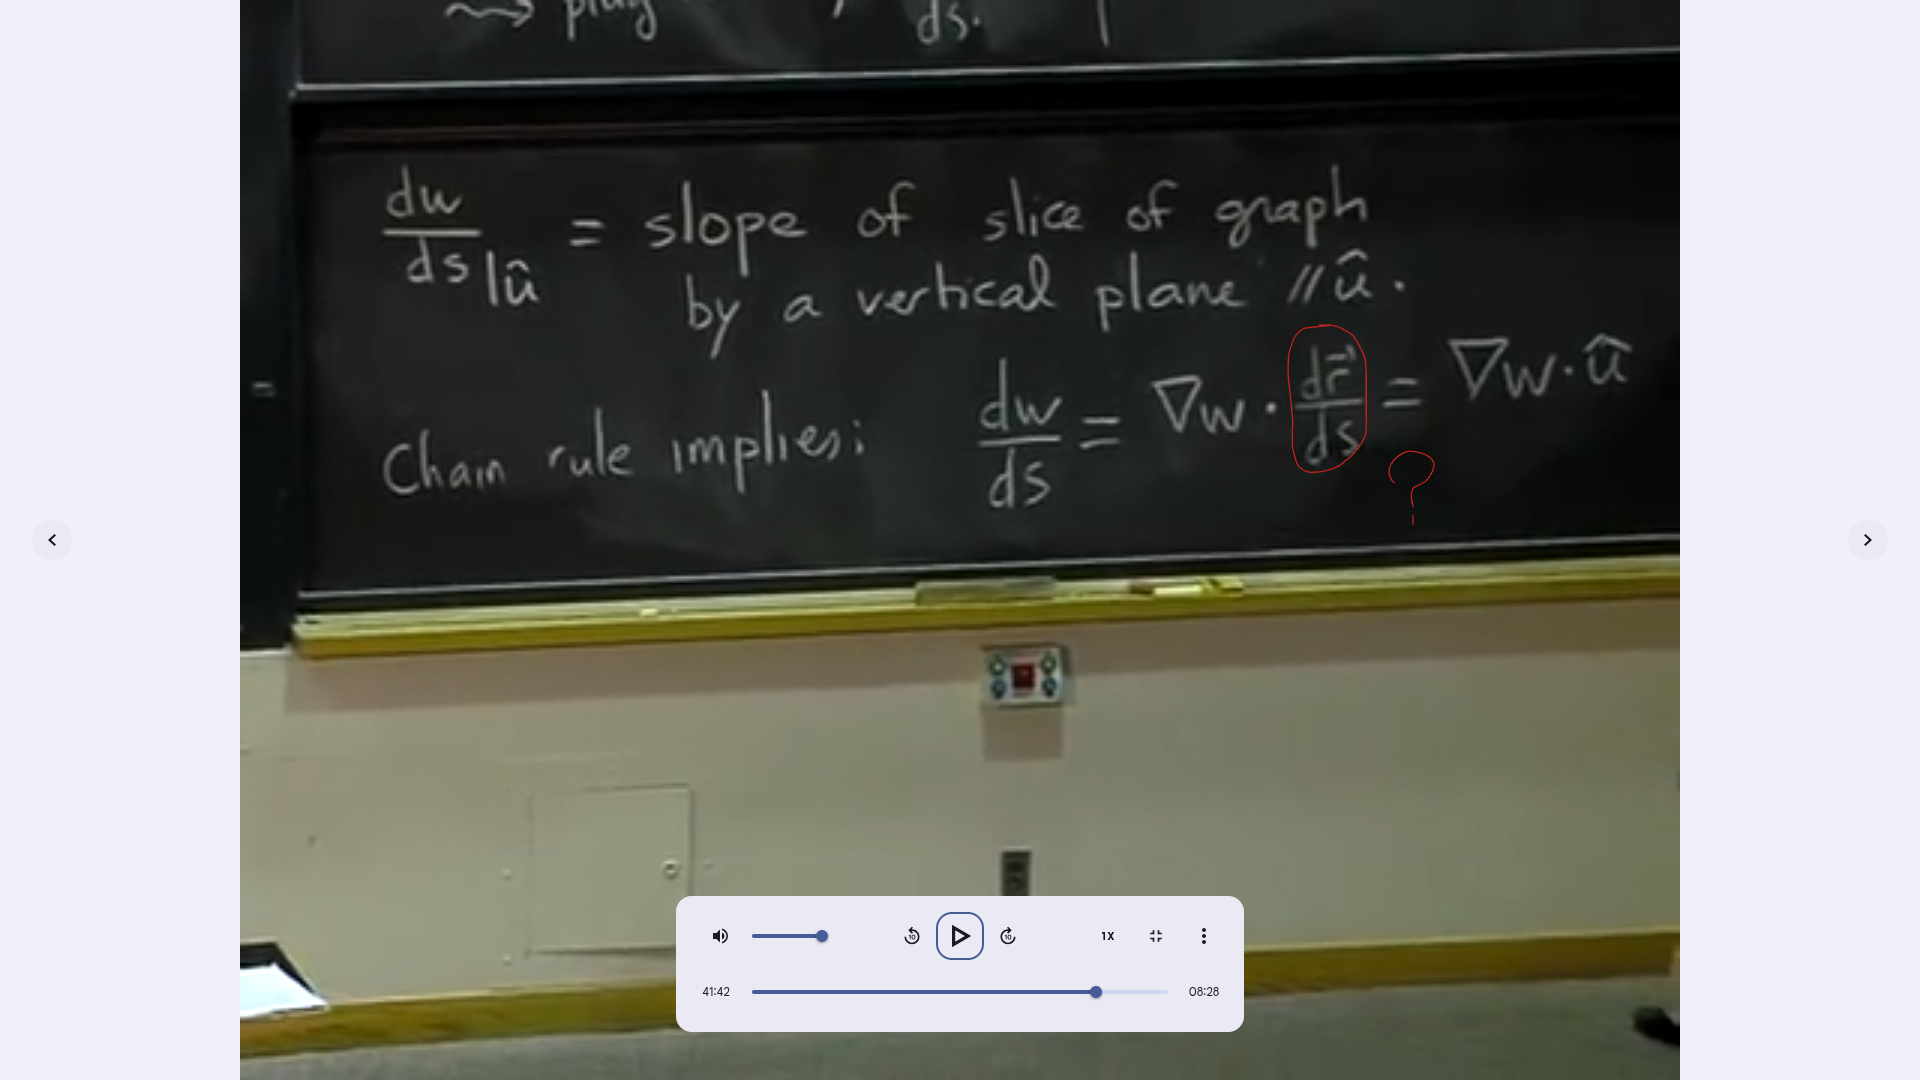 ⇝ plug
ds.
dw/ds|û = slope of slice of graph
by a vertical plane // û.
=
Chain rule implies: dw/ds = ∇w · dr⃗/ds = ∇w · û
?
1X
41:42
08:28